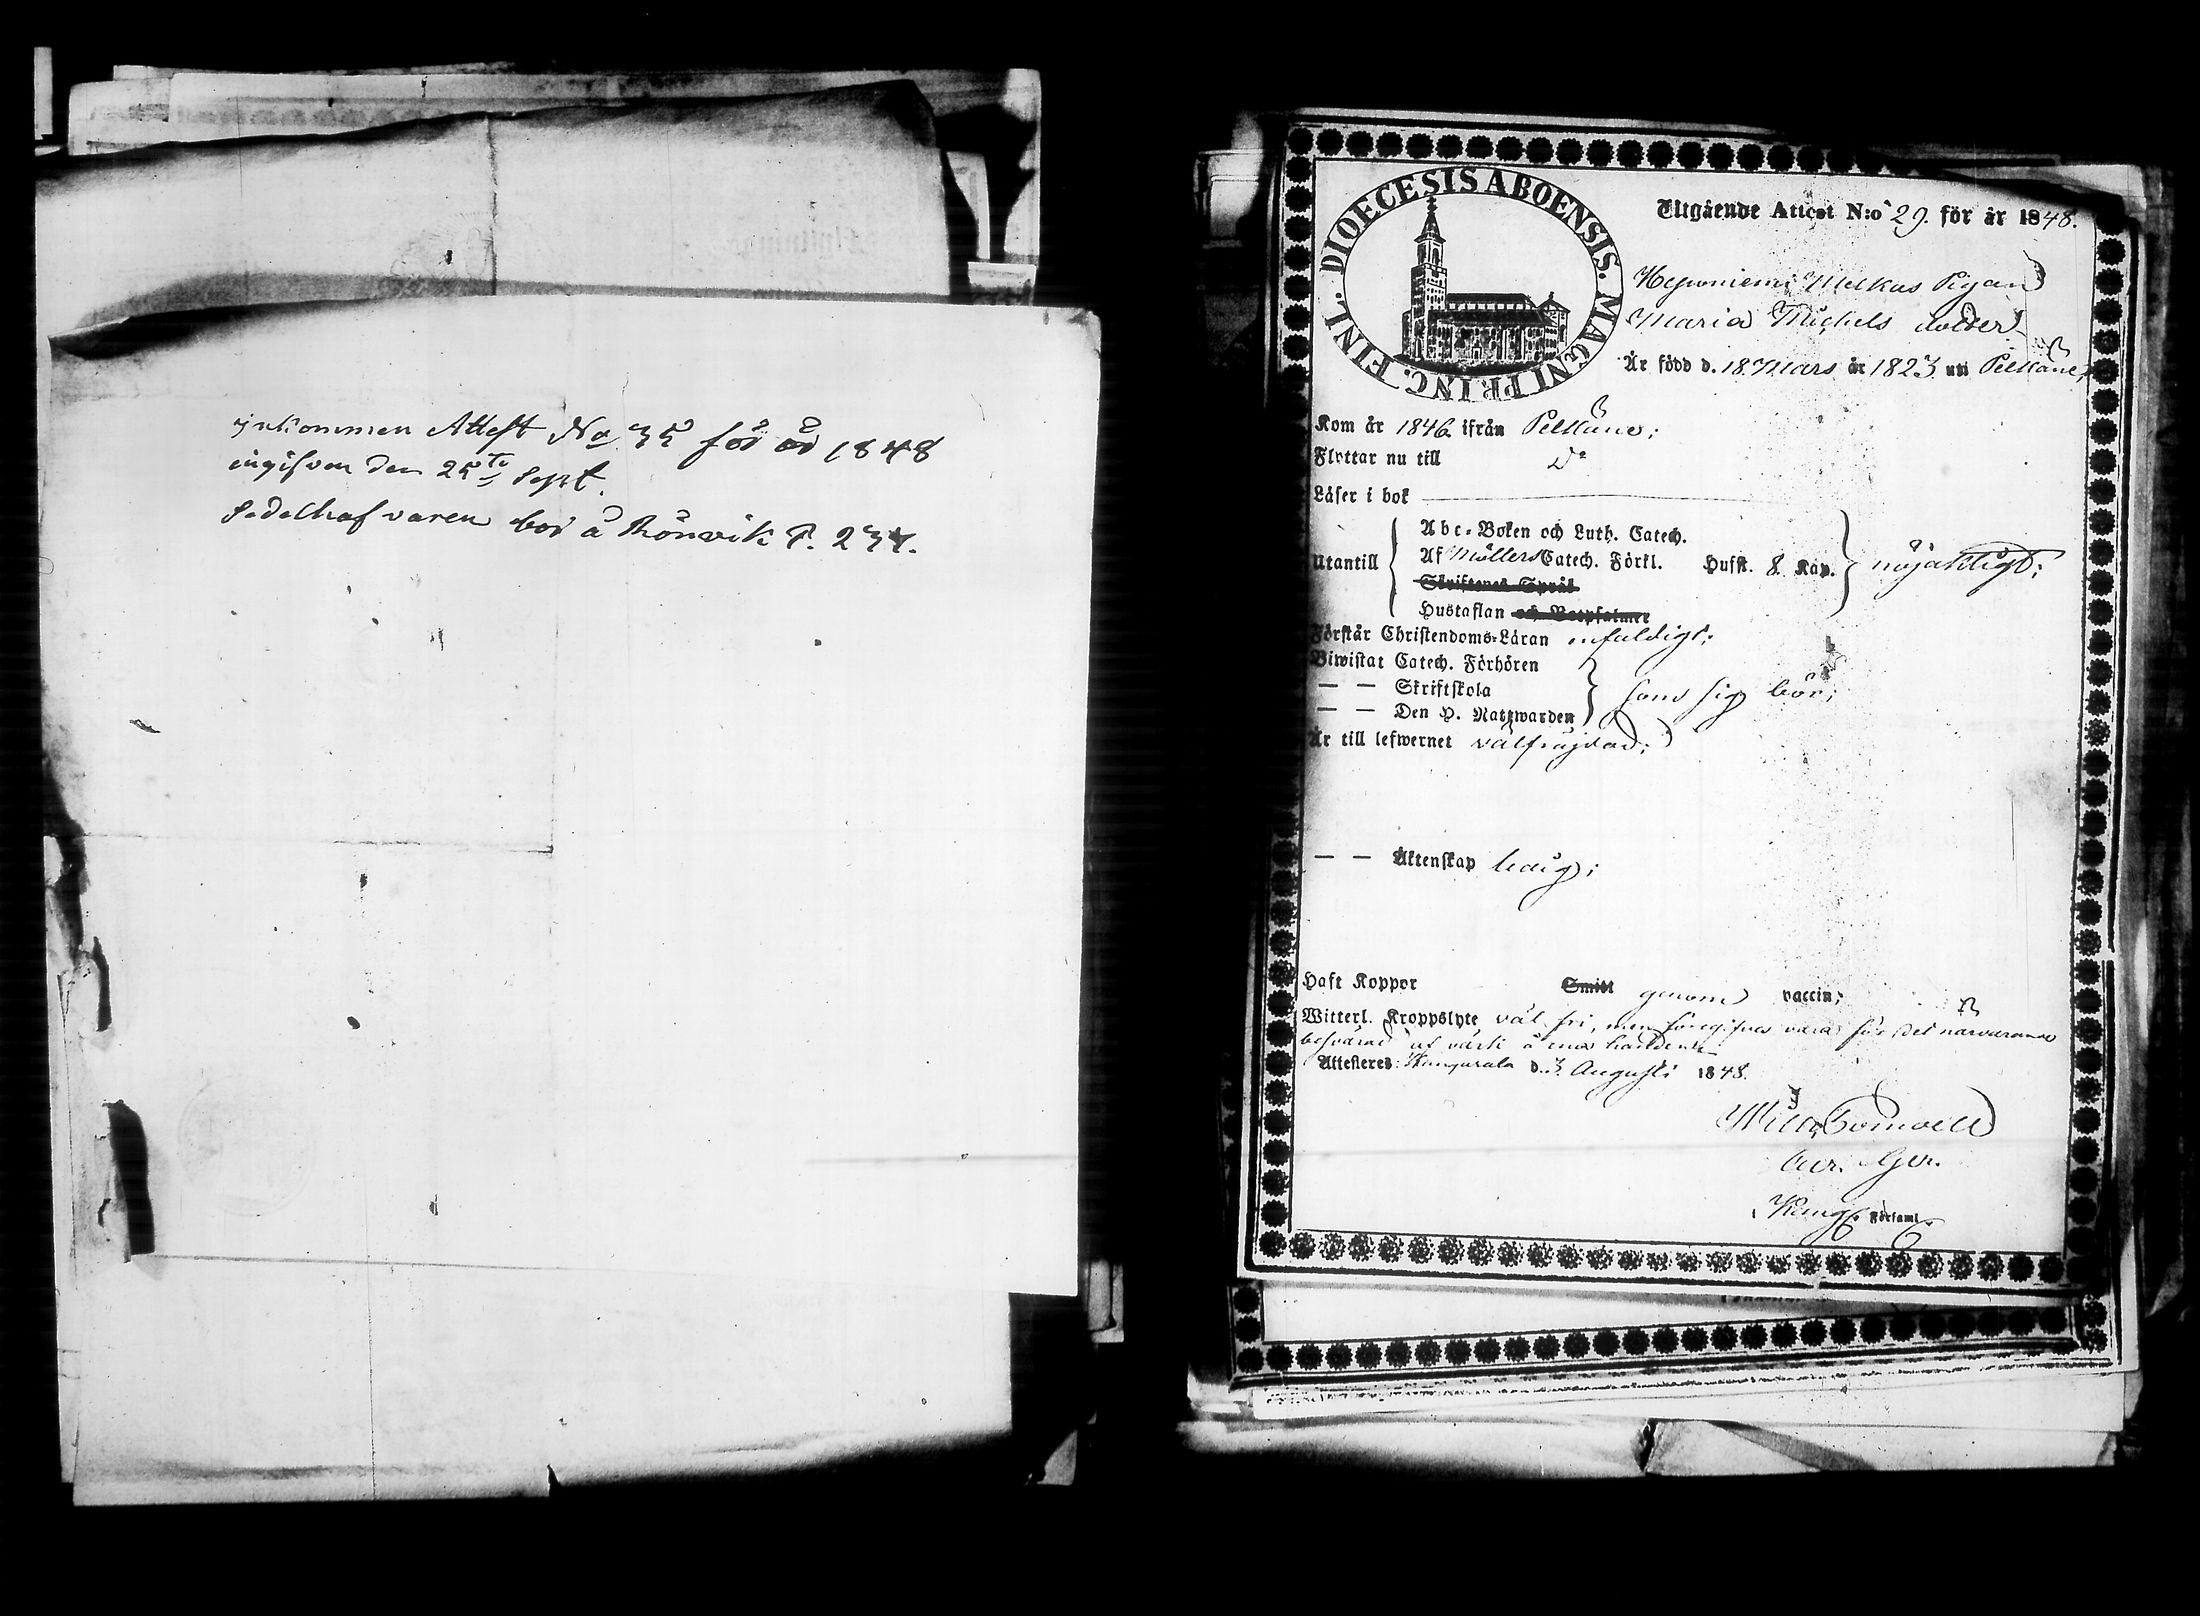 inkommen Attest No 35 för år 1848
ingifven den 25te Sept.
Sedelhafvaren bor å Rönvik P. 237.
DIOECESIS ABOENSIS. MAGNI PRINC. FINL.
Utgående Attest N:o 29. för år 1848.
Melkas Pigan
Maria Michels dotter
Är född d. 18 Mars år 1823 uti Pelkäne;
Kom år 1846 ifrån Pelkäne;
Flyttar nu till Do
Läser i bok
Utantill
Abc-Boken och Luth. Catech.
Af Möllers Catech. Förkl. Hufst. 8 Kap. nöjaktigt;
Skriftenes Språk
Hustaflan och Botpsalmer
Förstår Christendoms-Läran enfaldigt;
Biwistat Catech. Förhören
— — Skriftskola som sig bör;
— — Den H. Nattwarden
Är till lefwernet välfräjdad;
— — Äktenskap ledig;
Haft Koppor Smitt genom vaccin;
Witterl. Kroppslyte väl fri, men föregifves vara för det närvarande
besvärad af värk å ena handen
Attesteras: Kangasala d. 3 Augusti 1848.
Kang. Församl.